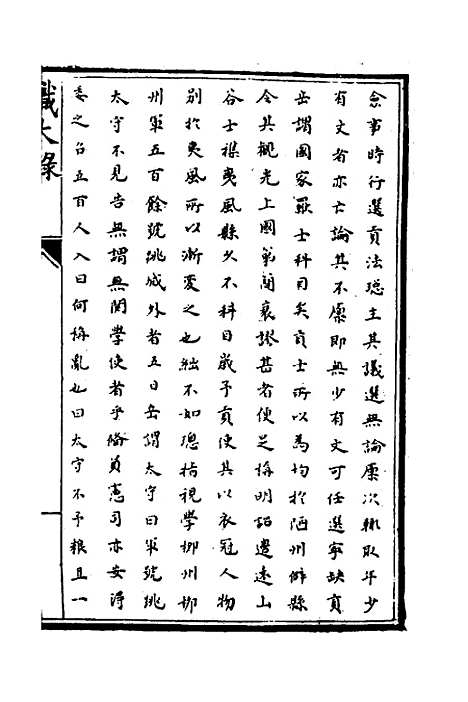 僉事時行選貢法璁主其議選無論廩次輒取年少
有文者亦亡論其不廩即無少有文可任選寧缺貢
岳謂國家取士科目矣貢士所以為均於陋州僻縣
令其觀光上國第簡衰謬甚者便足稱明詔邊遠山
谷士襍夷風縣久不科目歲予貢使其以衣冠人物
別於夷風所以漸变之也絀不如璁指視學柳州柳
州軍五百餘號跳城外者五日岳謂太守曰軍號跳
太守不見告無謂無関學使者乎脩員憲司亦安得
委之召五百人入曰何稱亂也曰太守不予粮且一
識大錄